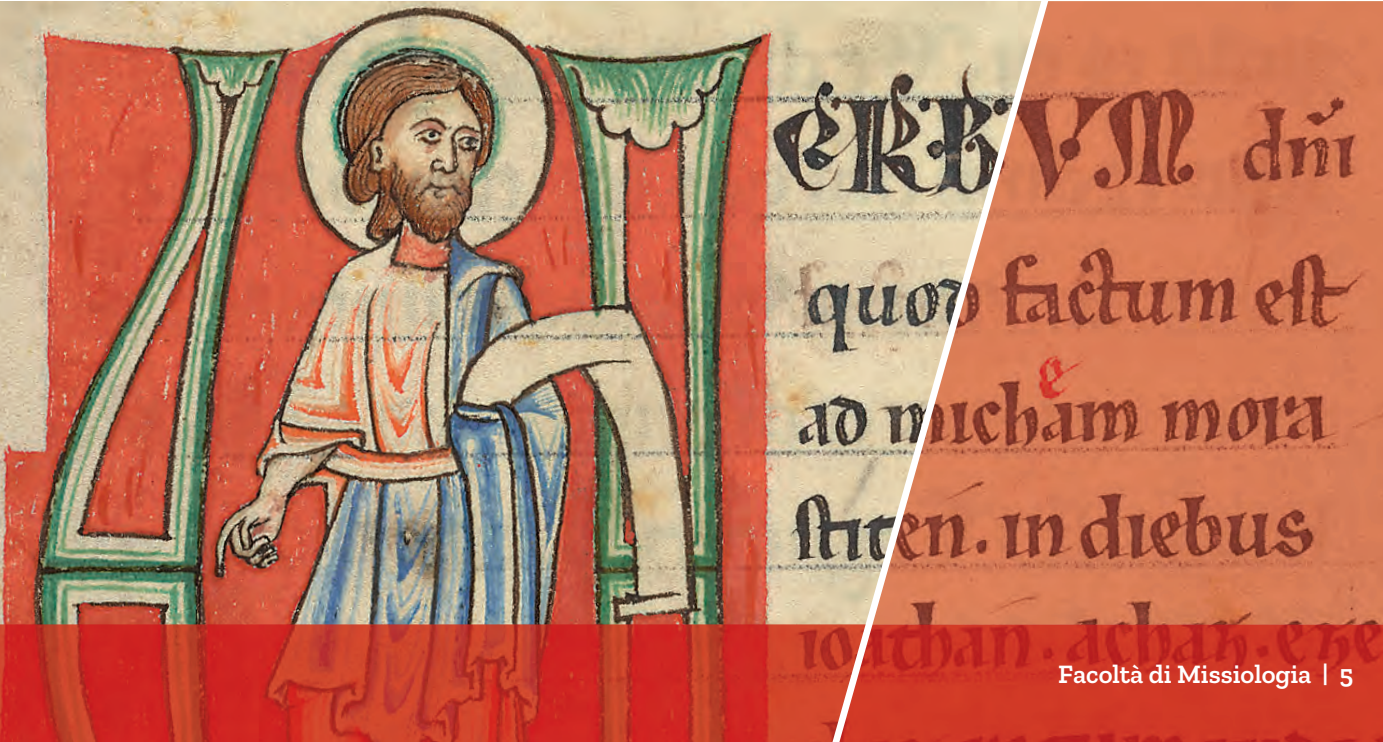 VERBVM dñi
quod factum eſt
ad micheam mora
ſtiten. in diebus
ioathan. achaz. eze
Facoltà di Missiologia | 5